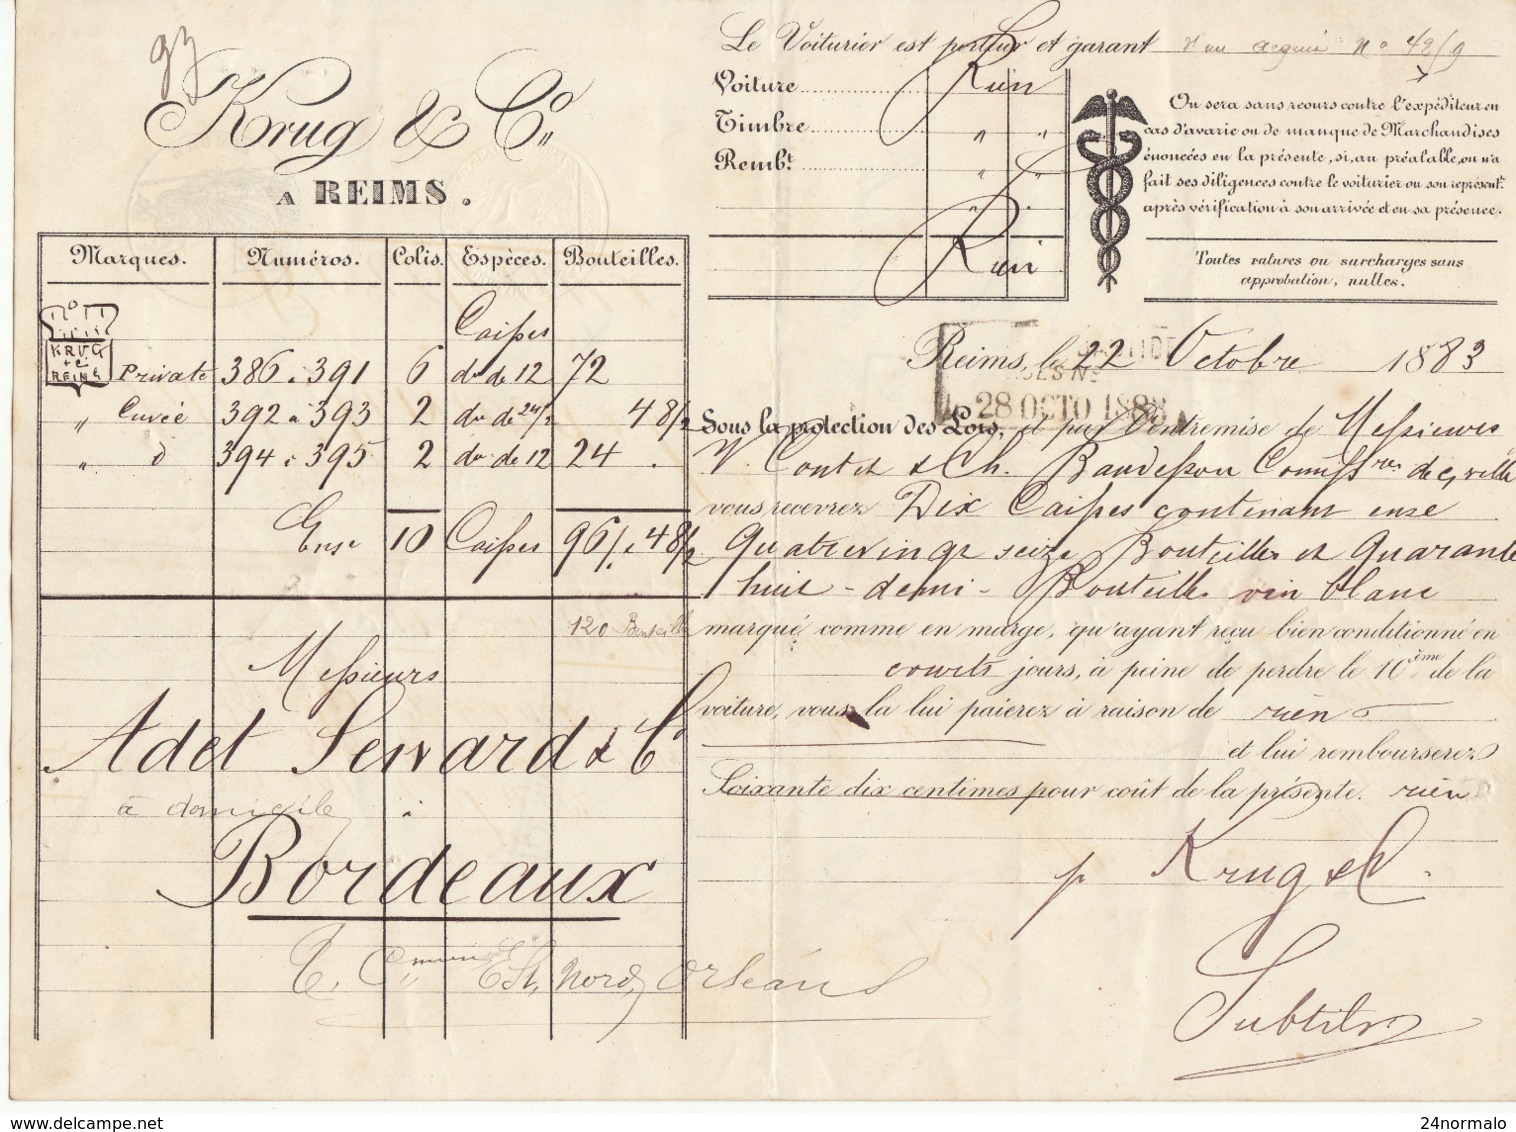 93
Krug & Cº
A REIMS.
Marques. Numéros. Colis. Espèces. Bouteilles.
Caisses
KRUG
& Cº
REIMS
Private 386 à 391 6 do de 12 72
" Cuvée 392 à 393 2 do de 24/2 48/2
" dº 394 à 395 2 do de 12 24 .
Ense 10 Caisses 96/1 48/2
120 Bouteilles
Messieurs
Adet Seward & Cº
à domicile à
Bordeaux
Est, Nord, Orléans
Le Voiturier est porteur et garant d'un acquit Nº 42/9
Voiture Rien
Timbre " "
Rembt. " "
Rien
On sera sans recours contre l'expéditeur en
cas d'avarie ou de manque de Marchandises
énoncées en la présente, si, au préalable, on n'a
fait ses diligences contre le voiturier ou son représentt.
après vérification à son arrivée et en sa présence.
Toutes ratures ou surcharges sans
approbation, nulles.
Reims, le 22 Octobre 1883
28 OCTO 1883
Sous la protection des Lois, et par l'entremise de Messieurs
Vr Contet & Ch. Baudesson Commissres de cte ville
vous recevrez Dix Caisses contenant ense
Quatrevingt seize Bouteilles et Quarante
huit - demi - Bouteilles vin blanc
marqué comme en marge, qu'ayant reçu bien conditionné en
courts jours, à peine de perdre le 10ème de la
voiture, vous la lui paierez à raison de rien
et lui rembourserez
Soixante dix centimes pour coût de la présente. rien
p Krug & Cº
24normalo
delcampe.net